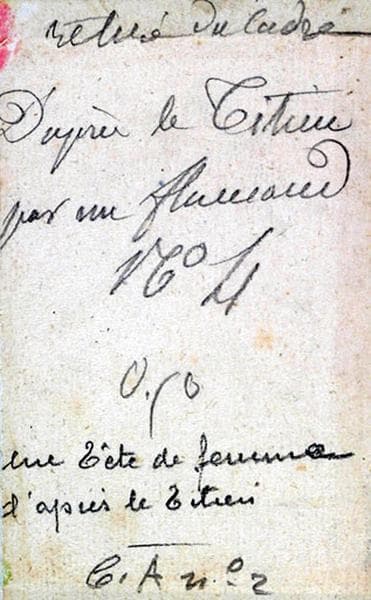 retiré du cadre
D'après le Titien
par un flamand
No 4
0.50
une Tête de femme
d'après le Titien
C. A no 2